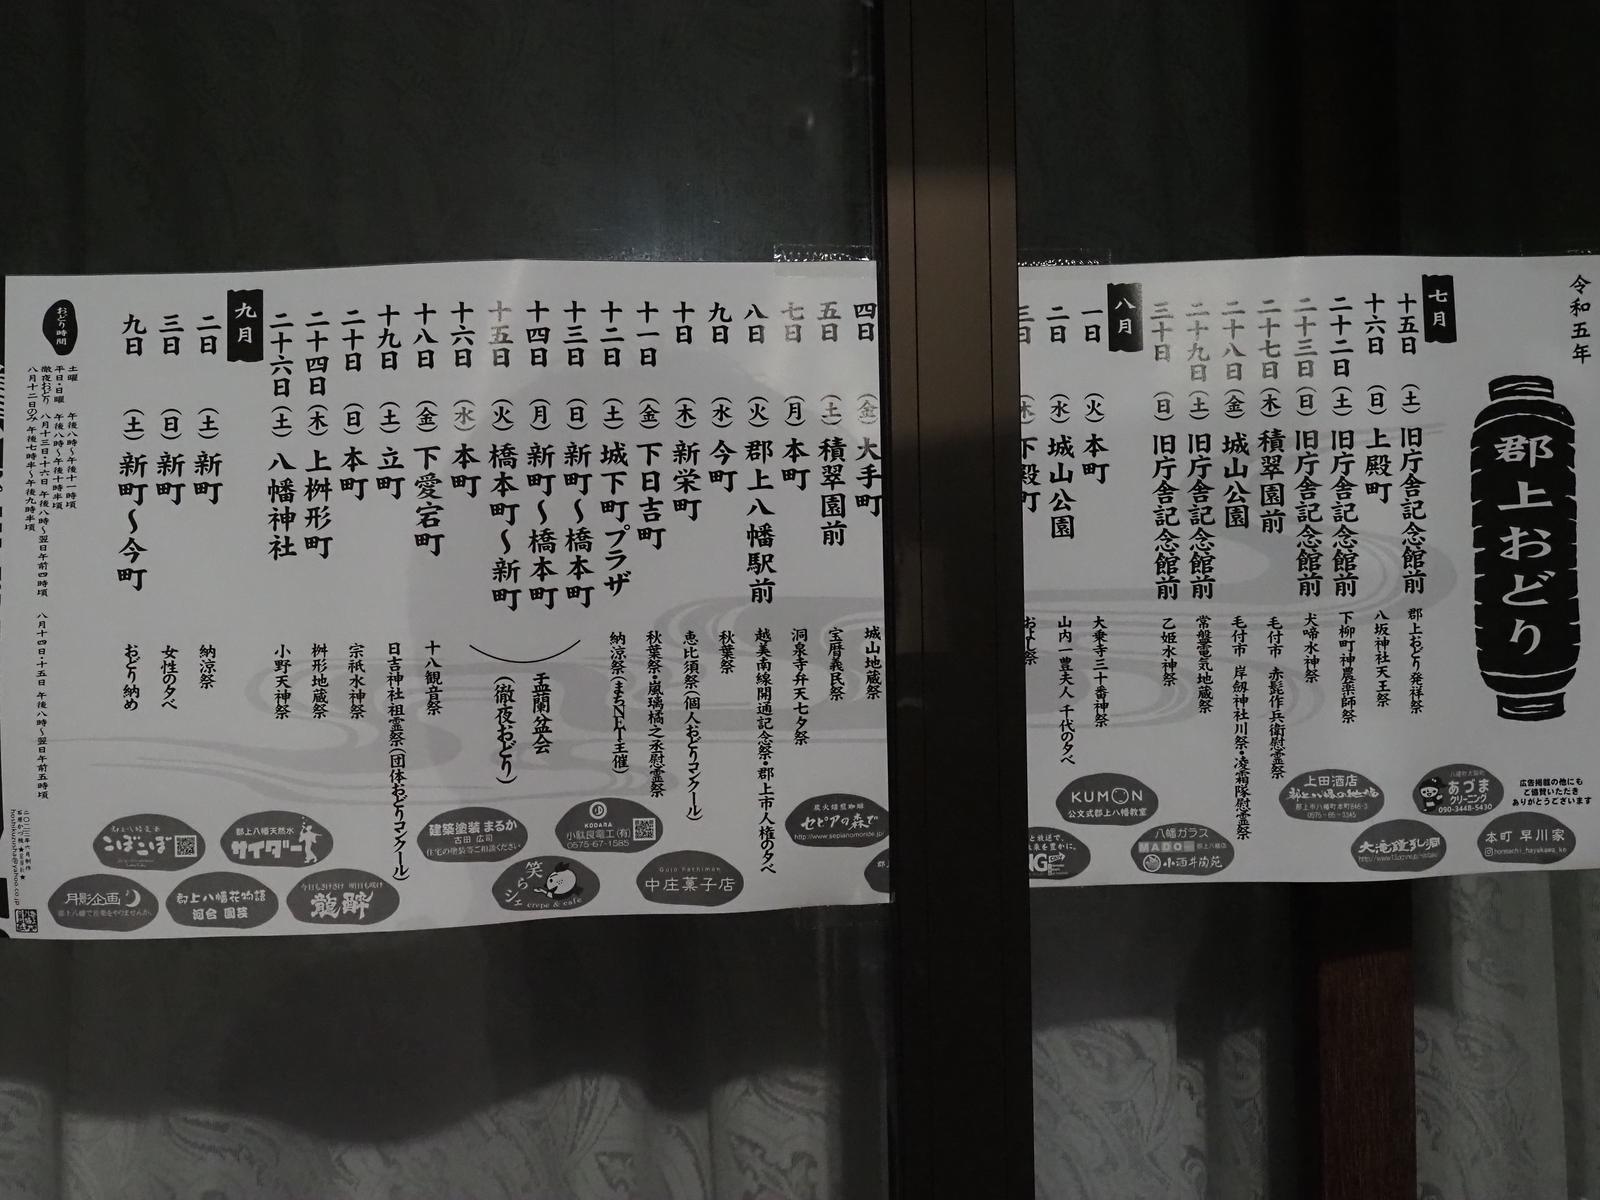 令和五年
郡上おどり
七月
十五日 （土） 旧庁舎記念館前 郡上おどり発祥祭
十六日 （日） 上殿町 八坂神社天王祭
二十二日 （土） 旧庁舎記念館前 下柳町神農薬師祭
二十三日 （日） 旧庁舎記念館前 犬啼水神祭
二十七日 （木） 積翠園前 毛付市 赤髭作兵衛慰霊祭
二十八日 （金） 城山公園 毛付市 岸劔神社川祭・凌霜隊慰霊祭
二十九日 （土） 旧庁舎記念館前 常盤電気地蔵祭
三十日 （日） 旧庁舎記念館前 乙姫水神祭
八月
一日 （火） 本町 大乗寺三十番神祭
二日 （水） 城山公園 山内一豊夫人 千代の夕べ
三日 （木） 下殿町
四日 （金） 大手町 城山地蔵祭
五日 （土） 積翠園前 宝暦義民祭
七日 （月） 本町 洞泉寺弁天七夕祭
八日 （火） 郡上八幡駅前 越美南線開通記念祭・郡上市人権の夕べ
九日 （水） 今町 秋葉祭
十日 （木） 新栄町 恵比須祭（個人おどりコンクール）
十一日 （金） 下日吉町 秋葉祭・嵐璃橘之丞慰霊祭
十二日 （土） 城下町プラザ 納涼祭（まちNET主催）
十三日 （日） 新町～橋本町
十四日 （月） 新町～橋本町
十五日 （火） 橋本町～新町
盂蘭盆会
（徹夜おどり）
十六日 （水） 本町
十八日 （金） 下愛宕町 十八観音祭
十九日 （土） 立町 日吉神社祖霊祭（団体おどりコンクール）
二十日 （日） 本町 宗祇水神祭
二十四日 （木） 上桝形町 桝形地蔵祭
二十六日 （土） 八幡神社 小野天神祭
九月
二日 （土） 新町 納涼祭
三日 （日） 新町 女性の夕べ
九日 （土） 新町～今町 おどり納め
おどり時間
土曜 午後八時～午後十一時頃
平日・日曜 午後八時～午後十時半頃
徹夜おどり 八月十三日・十六日 午後八時～翌日午前四時頃 八月十四日・十五日 午後八時～翌日午前五時頃
八月十二日のみ 午後七時半～午後九時半頃
広告掲載の他にも
ご協賛いただき
ありがとうございます
あづま
クリーニング
090-3448-5430
本町 早川家
honmachi_hayakawa_ke
上田酒店
郡上八幡の地酒
郡上市八幡町本町846-3
0575-65-3345
大滝鍾乳洞
KUMON
公文式郡上八幡教室
八幡ガラス
MADO
小酒井菊苑
炭火焙煎珈琲
セピアの森で
KODARA
小駄良電工(有)
0575-67-1585
Gujo Hachiman
中庄菓子店
建築塗装 まるか
古田 広司
住宅の塗装等ご相談ください
笑らシェ
crepe & cafe
郡上八幡天然水
サイダー
今日もきげさけ 明日も咲け
龍酔
こぼこぼ
郡上八幡花物語
河合 園芸
月影企画
郡上八幡で音楽をやりませんか。
二〇二三年六月制作